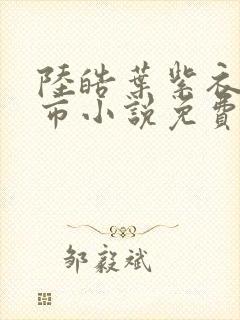 陸皓葉紫衣
市小說免費
鄒毅斌